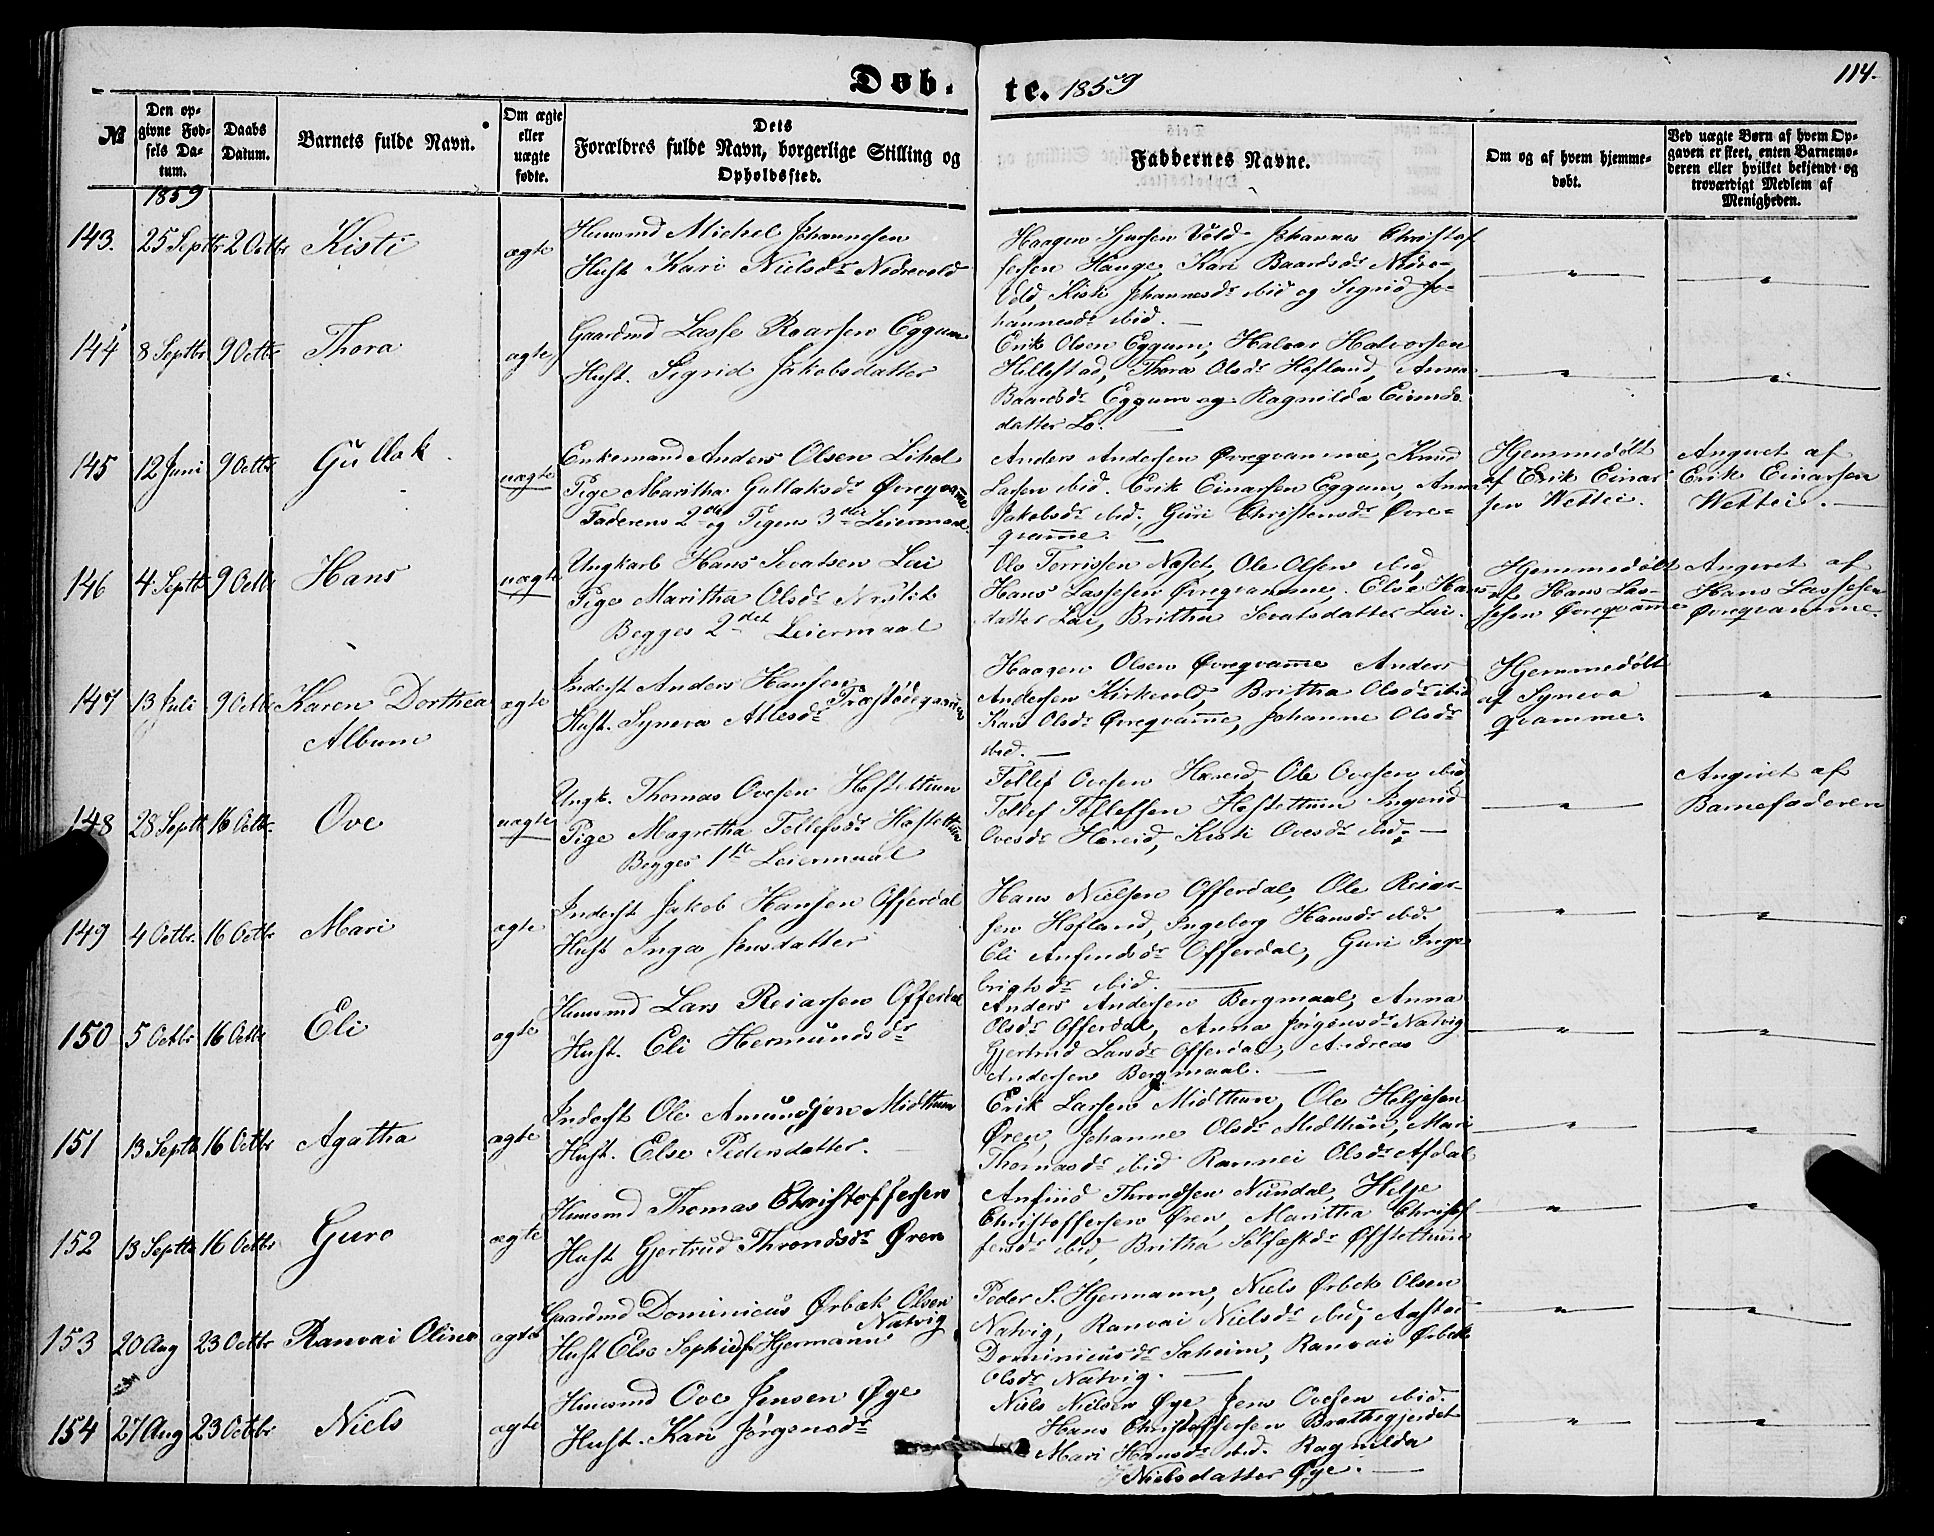 Døb-
te. 1859
114.
№
Den op-
givne Fød-
sels Da-
tum.
Daabs
Datum.
Barnets fulde Navn.
Om ægte
eller
uægte
fødte.
Dets
Forældres fulde Navn, borgerlige Stilling og
Opholdssted.
Faddernes Navne.
Om og af hvem hjemme-
døbt.
Ved uægte Børn af hvem Op-
gaven er skeet, enten Barnemo-
deren eller hvilket bekjendt og
troværdigt Medlem af
Menigheden.
1859
143. 25 Septbr 2 Octbr Kisti ægte
Huusmd Michel Johannesen
Hust. Kari Nielsdr Nedrevold
Haagen Vold Johannes Christof
fersen Hauge, Kari Baardsdr Nedre-
Vold, Kisti Johannesdr ibid og Sigrid Jo-
hannesdr ibid.
144 8 Septbr 9 Octbr Thora ægte
Gaardmd Lasse Roarsen Eggum
Hust. Sigrid Jakobsdatter
Erik Olsen Eggum, Halvor Halvorsen
Hillestad, Thora Olsdr Hofland, Anna
Baardsdr Eggum og Ragnilda Eivinds-
datter Lo.
145 12 Juni 9 Octbr Gullak uægte
Enkemand Anders Olsen Lihol
Pige Maritha Gullaksdr Øvreqvamme
Faderens 2det og Pigens 3die Leiermaal
Anders Andersen Øvreqvamme, Knud
Larsen ibid. Erik Einarsen Eggum, Anna
Jakobsdr ibid, Guri Christensdr Øvre-
qvamme.
Hjemmedøbt
af Erik Einar
sen Wettei.
Angivet af
Erik Einarsen
Wettei.
146 4 Septbr 9 Octbr Hans uægte
Ungkarl Hans Sevatsen Lai
Pige Maritha Olsdr
Begges 2det Leiermaal
Ole Torrissen Næset, Ole Olsen ibid,
Hans Lassesen Øvreqvamme. Else Hans-
datter Lai, Britha Sevatsdatter Lai.
Hjemmedøbt
af Hans Las-
sesen Øvreqvamme
Angivet af
Hans Lassesen
Øvreqvamme.
147 13 Juli 9 Octbr Karen Dorthea
Album
ægte
Inderst Anders Hansen
Hust. Syneva Atlesdr Præstødegaarden
Haagen Olsen Øvreqvamme Anders
Andersen Kirkevold, Britha Olsdr ibid
Kari Olsdr Øvreqvamme, Johanne Olsdr
ibid.
Hjemmedøbt
af Syneva
qvamme.
148 28 Septbr 16 Octbr Ove uægte
Ungk. Thomas Ovesen Hestetthun
Pige Magretha Tollefsdr Hestetthun
Begges 1ste Leiermaal
Tollef Ovesen Hæreid, Ole Ovesen ibid,
Tollef Tollefsen Hestetthun Ingerid
Ovesdr Hæreid, Kisti Ovesdr ibid.
Angivet af
Barnefaderen
149 4 Octbr. 16 Octbr Mari ægte
Inderst Jakob Hansen Offerdal
Hust Inga Jensdatter
Hans Nielsen Offerdal, Ole Reiar-
sen Hofland, Ingeborg Hansdr ibid.
Eli Anfindsdr Offerdal, Guri Inge
brigtsdr ibid.
150 5 Octbr 16 Octbr Eli ægte
Huusmd Lars Reiarsen Offerdal
Hust. Eli Hermundsdr
Anders Andersen Bergmaal, Anna
Olsdr Offerdal, Anna Jørgensdr Natvig
Gjertrud Larsdr Offerdal, Andreas
Andersen Bergmaal.
151 13 Septbr 16 Octbr Agatha ægte
Inderst Ole Amundsen Midthun
Hust. Else Pedersdatter.
Erik Larsen Midthun, Ole Heljesen
Øren, Johanne Olsdr Midthun, Mari
Thomasdr ibid Rannei Olsdr Afdal
152 13 Septbr 16 Octbr Guro ægte
Huusmd Thomas Christoffersen
Hust Gjertrud Throndsdr Øren
Anfind Throndsen Nundal, Helje
Christoffersen Øren, Maritha Christof
fersdr ibid, Britha Solfæstdr Offstethun
153 20 Aug 23 Octbr Ranvai Oline ægte
Gaardmd Dominicus Ørbæk Olsen
Natvig
Hust Else Sophie Hjermann
Peder S. Hjermann, Niels Ørbek Olsen
Natvig, Ranvai Nielsdr ibid, Aasta
Dominicusdr Saheim, Ranvai Ørbek
Olsdr Natvig.
154 27 Aug 23 Octbr Niels ægte
Huusmd Ove Jensen Øye
Hust. Kari Jørgensdr
Niels Nielsen Øye, Jens Ovesen ibid.
Hans Christoffersen Brathegjerdet
Mari Hansdr ibid. Ragnilda
Nielsdatter Øye.